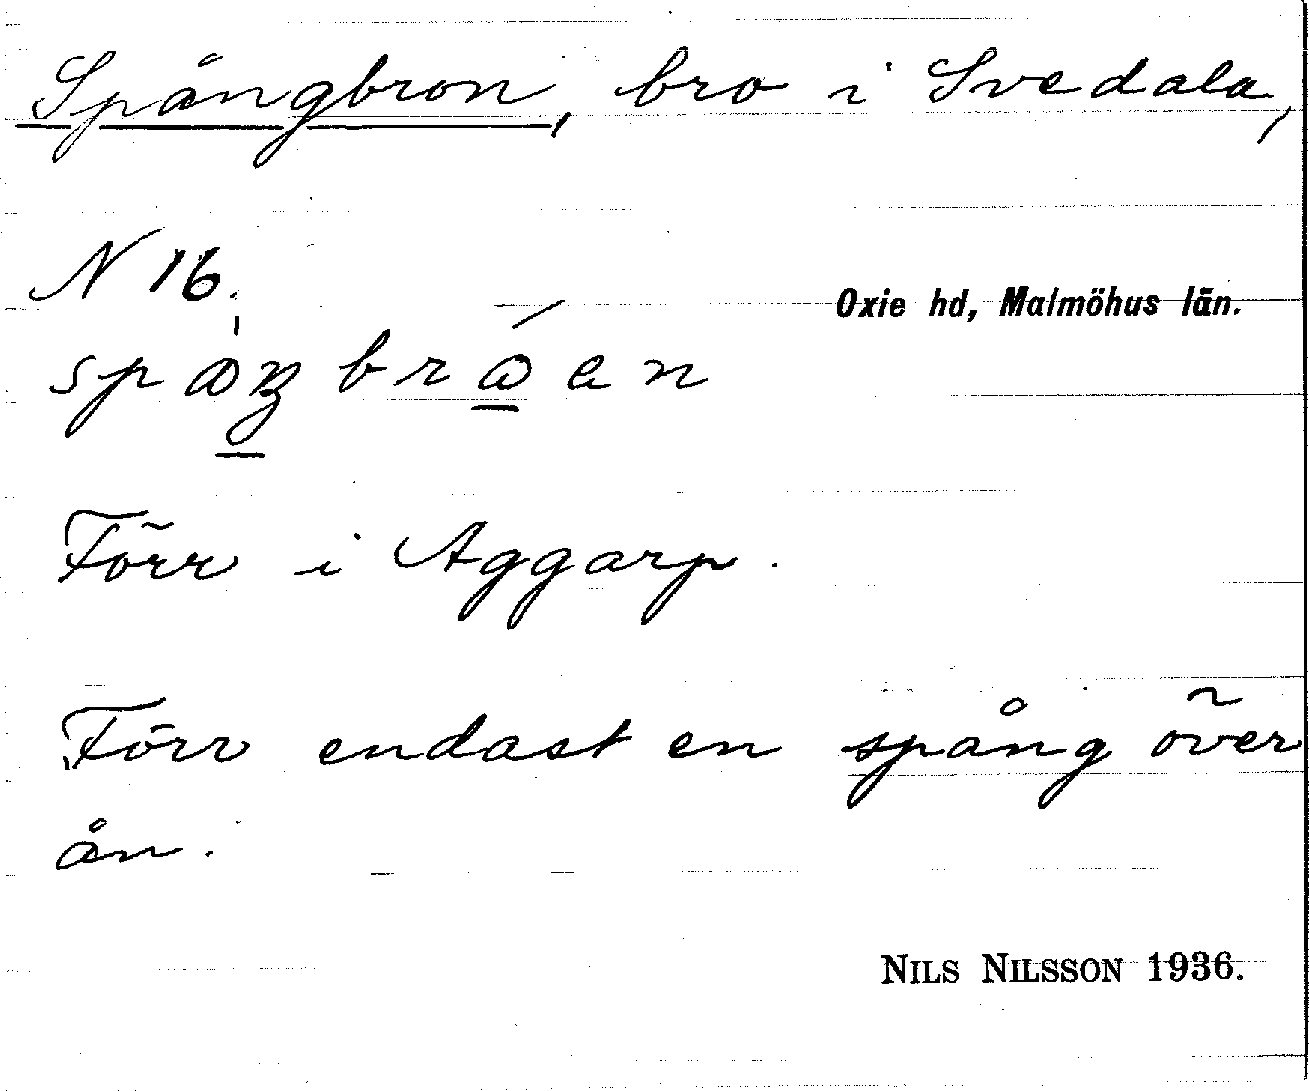 Spångbron, bro i Svedala,
N 16.
Oxie hd, Malmöhus län.
Förr i Aggarp.
Förr endast en spång över
ån.
NILS NILSSON 1936.